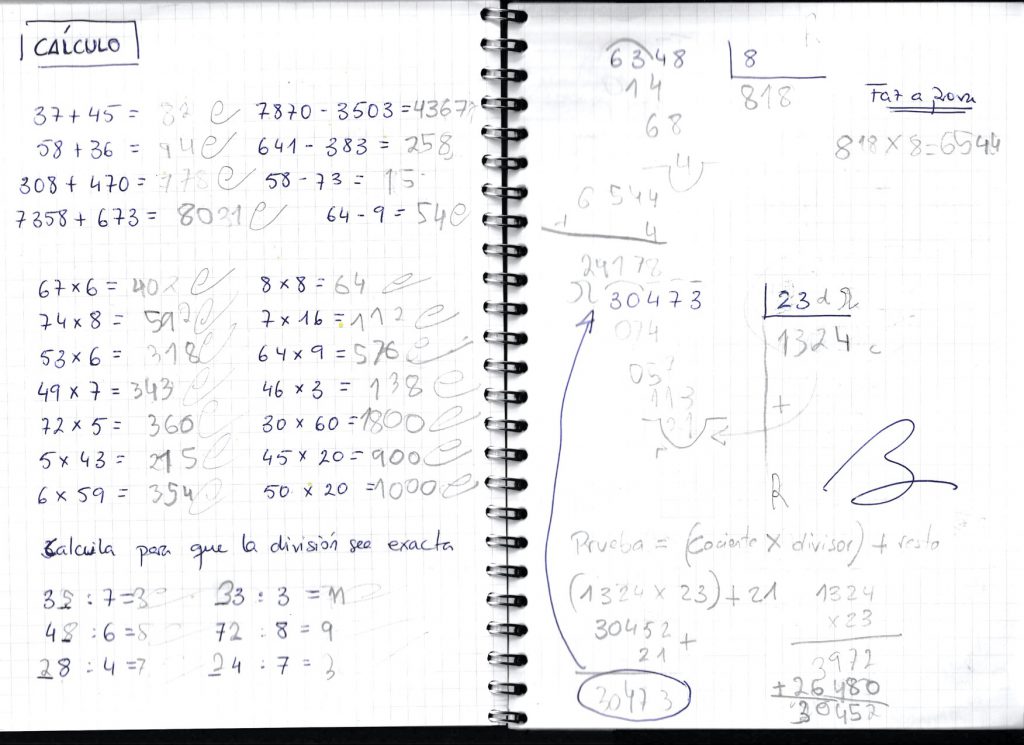 CÁLCULO
37 + 45 = 82
7870 - 3503 = 4367
58 + 36 = 94
641 - 383 = 258
308 + 470 = 778
58 - 73 = 15
7358 + 673 = 8031
64 - 9 = 54
67 x 6 = 402
8 x 8 = 64
74 x 8 = 592
7 x 16 = 112
53 x 6 = 318
64 x 9 = 576
49 x 7 = 343
46 x 3 = 138
72 x 5 = 360
30 x 60 = 1800
5 x 43 = 215
45 x 20 = 900
6 x 59 = 354
50 x 20 = 1000
Calcula para que la división see exacta
: 7 = 3
33 : 3 = 11
48 : 6 = 8
72 : 8 = 9
28 : 4 = 7
24 : 7 = 3
6348 8
14 818
68
4
Faz a prova
818 x 8 = 6544
6544
+ 4
30473 23 d
074 1324 c
113
+
R
Prueba = (cociente x divisor) + resto
(1324 x 23) + 21
30452 +
21
30473
1324
x 23
3972
+ 26480
30452